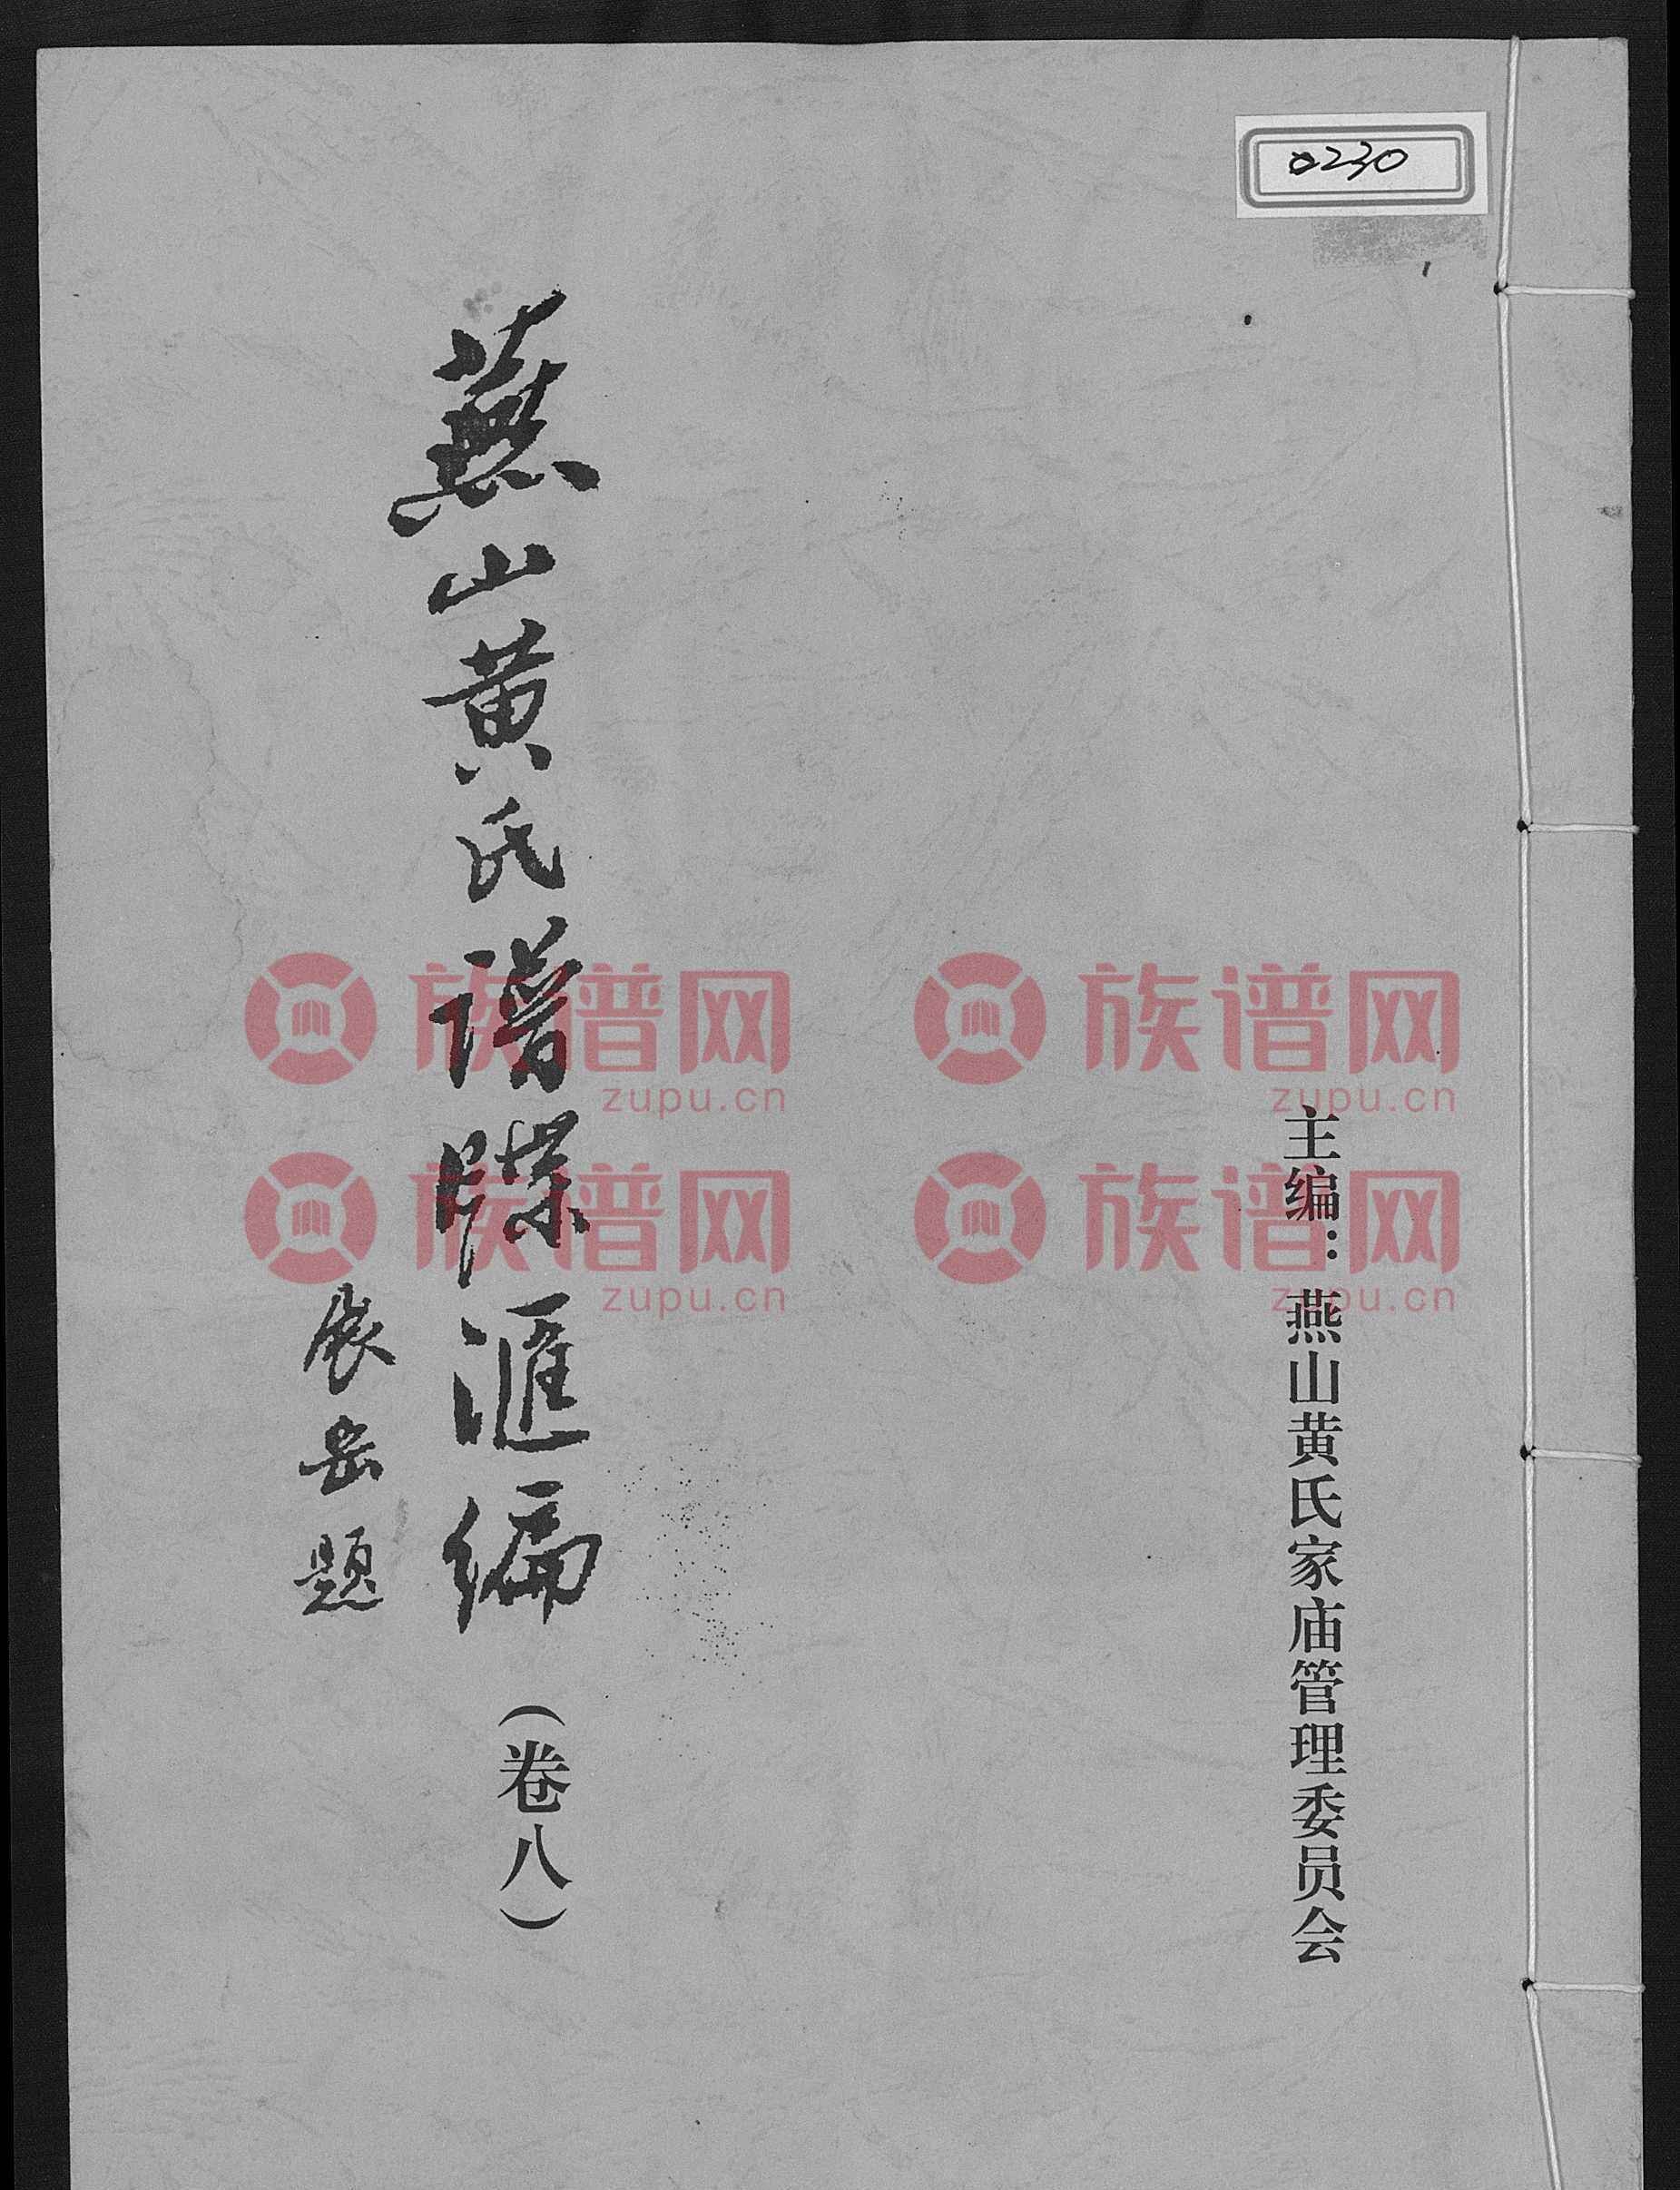 0230
主编：燕山黄氏家庙管理委员会
燕山黄氏谱牒滙编（卷八）
展岳题
族谱网
zupu.cn
族谱网
zupu.cn
族谱网
zupu.cn
族谱网
zupu.cn